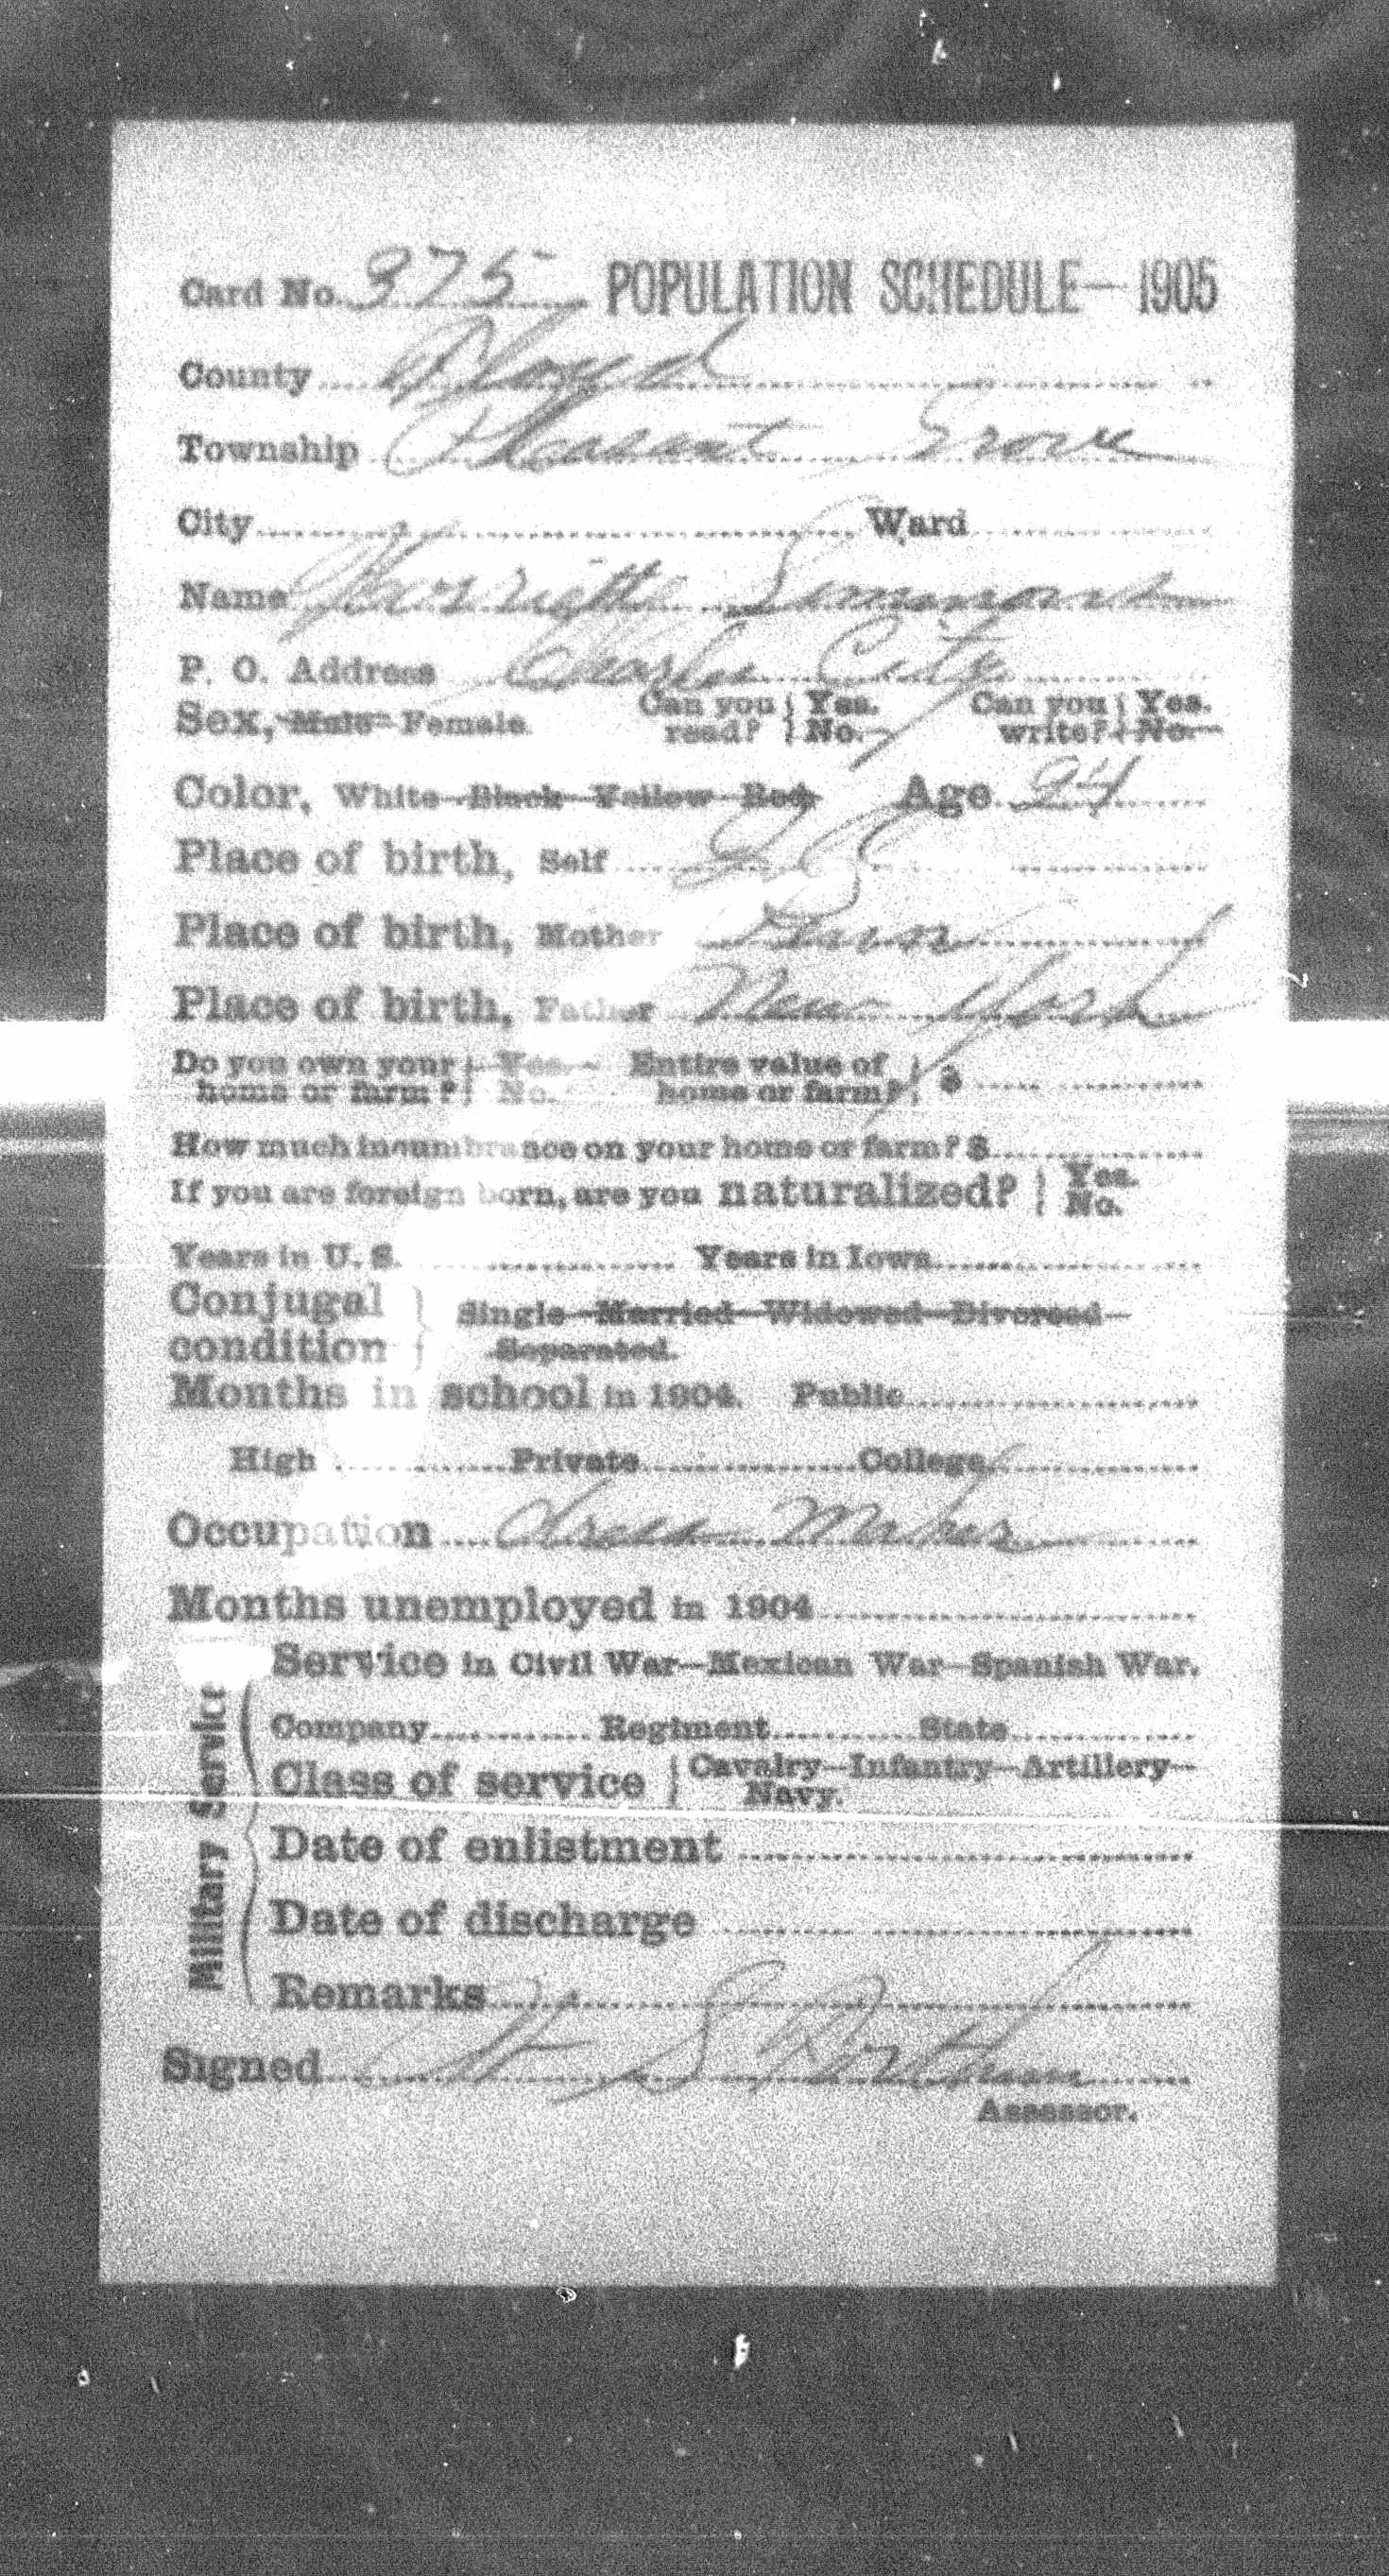 Card No. 375 POPULATION SCHEDULE—1905
County Floyd
Township Pleasant Grove
City Ward
Name Henrietta Simmons
P. O. Address Charles City
Sex, Male Female. Can you read? Yes. No. Can you write? Yes. No.
Color, White—Black—Yellow—Red Age 24
Place of birth, Self
Place of birth, Mother Penn
Place of birth, Father New York
Do you own your home or farm? Yes. No. Entire value of home or farm? $
How much incumbrance on your home or farm? $
If you are foreign born, are you naturalized? Yes. No.
Years in U. S. Years in Iowa
Conjugal condition Single—Married—Widowed—Divorced—
Separated.
Months in school in 1904. Public
High Private College
Occupation dress Maker
Months unemployed in 1904
Military Service
Service in Civil War—Mexican War—Spanish War.
Company Regiment State
Class of service Cavalry—Infantry—Artillery—
Navy.
Date of enlistment
Date of discharge
Remarks
Signed S
Assessor.